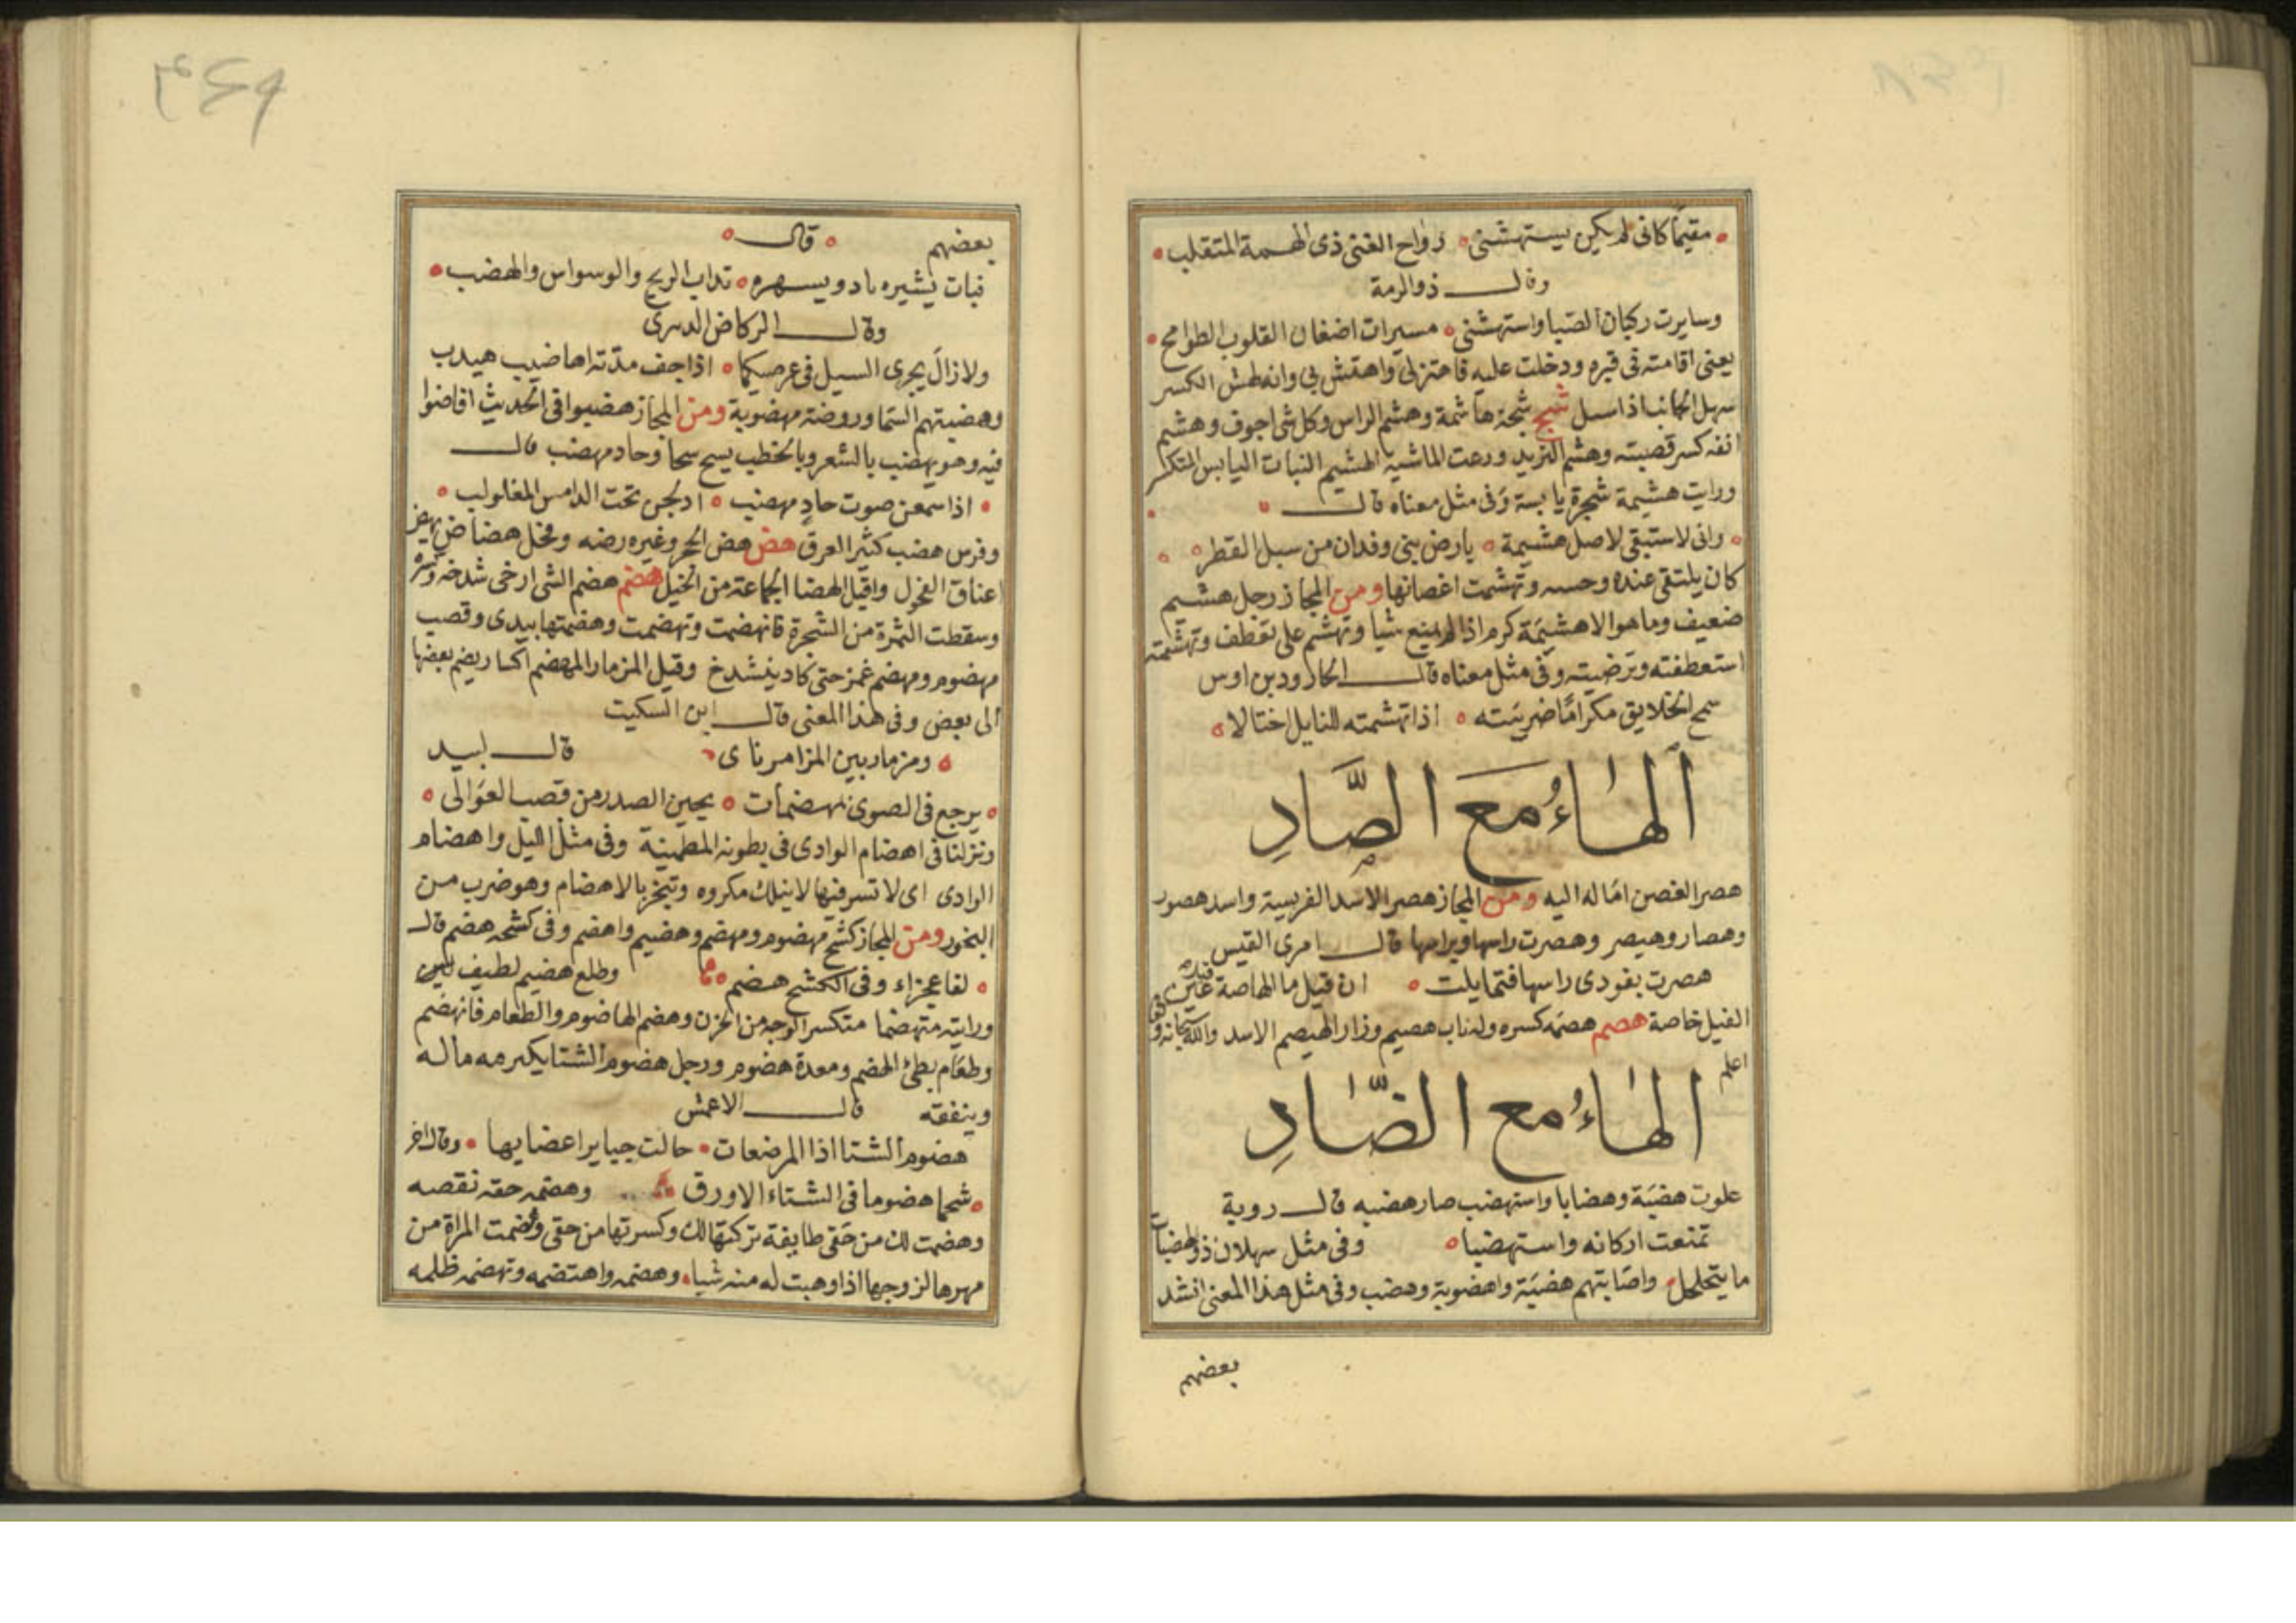 مقيماً كانى لم يكن يستهشنى رواح الغنى ذى الهمة المتقلب
وقال ذو الرمة
وسايرت ركبان الصبا واستهشنى مسيرات اضغان القلوب الطوامح
يعنى اقامته فى قبره ودخلت عليه فاهتز لى واهتش بى وانه لهش الكسر
سهل الجانب اذا سيل شج شجة هاشمة وهشم الراس وكل شى اجوف وهشم
انفه كسر قصبته وهشم الثريد ورعت الماشية الهشيم النبات اليابس المتكسر
ورايت هشيمة شجرة يابسة وفى مثل معناه قال
وانى لاستبقى لاصل هشيمة يارض بنى وفدان من سبل القطر
كان يلتقى عنده وحسه وتهشمت اغصانها ومن المجاز رجل هشيم
ضعيف وما هو الا هشيمة كرم اذا لم يمنع شيا وتهشم على تعطف وتهشمته
استعطفته وترضيته وفى مثل معناه قال الجارود بن اوس
سمح الخلايق مكراما ضريبته اذا تهشمته للنايل اختالا
الهاء مع الصاد
هصر الغصن اماله اليه ومن المجاز هصر الاسد الفريسة واسد هصور
وهصار وهيصر وهصرت راسها وبراسها قال امرى القيس
هصرت بفودى راسها فتمايلت ان قيل ما الهاصة عين
الفيل خاصة هصم هصمه كسره ولناب هصيم وزار الهيصم الاسد والله سبحانه و
اعلم
الهاء مع الضاد
علوت هضبة وهضابا واستهضب صار هضبه قال روبة
تمنعت اركانه واستهضبا وفى مثل سهلان ذو الهضبات
ما يتحلحل واصابتهم هضبة واهضوبة وهضب وفى مثل هذا المعنى انشد
بعضهم
٤٤٩
بعضهم قال
فبات يشيره باد ويسهره تداب الريح والوسواس والهضب
وقال الركاض الدبيرى
ولا زال يجرى السيل فى عرصيكما اذا جف مدته اهاضيب هيدب
وهضبتهم السما وروضة مهضوبة ومن المجاز هضبوا فى الحديث افاضوا
فيه وهو يهضب بالشعر وبالخطب يسح سحا وحاد مهضب قال
اذا سمعن صوت حاد مهضب ادلجن تحت الدامس المغلولب
وفرس هضب كثير العرق هض هض الحجر وغيره رضه وفحل هضاض يهض
اعناق الفحول واقبل الهضا الجماعة من الخيل هضم هضم الشى ارخى شدخه وكسره
وسقطت الثمرة من الشجرة فانهضمت وتهضمت وهضمتها بيدى وقصب
مهضوم ومهضم غمز حتى كاد ينشدخ وقيل المزمار المهضم اكسار يضم بعضها
الى بعض وفى هذا المعنى قال ابن السكيت
ومزمار بين المزامر ناى قال لبيد
يرجع فى الصوى بمهضمات يجبن الصدر من قصب العوالى
ونزلنا فى اهضام الوادى فى بطونه المطمينة وفى مثل الليل واهضام
الوادى اى لا تسر فيها لا ينلك مكروه وتبخر بالاهضام وهو ضرب من
البخور ومن المجاز كشح مهضوم ومهضم وهضيم واهضم وفى كشحه هضم قال
لفا عجزاء وفى الكشح هضم وطلع هضيم لطيف لين
ورايته متهضما متكسر الوجه من الحزن وهضم الهاضوم والطعام فانهضم
وطعام بطئ الهضم ومعدة هضوم ورجل هضوم الشتا يكبر مه ماله
وينفقه قال الاعمش
هضوم الشتا اذا المرضعات حالت جبايرا عضايها وقال اخر
شحما هضوما فى الشتاء الاورق وهضمه حقه نقصه
وهضمت لك من حقى طايفة تركتها لك وكسرتها من حقى وهضمت المراة من
مهرها لزوجها اذا وهبت له منه شيا وهضمه واهتضمه وتهضمه ظلمه